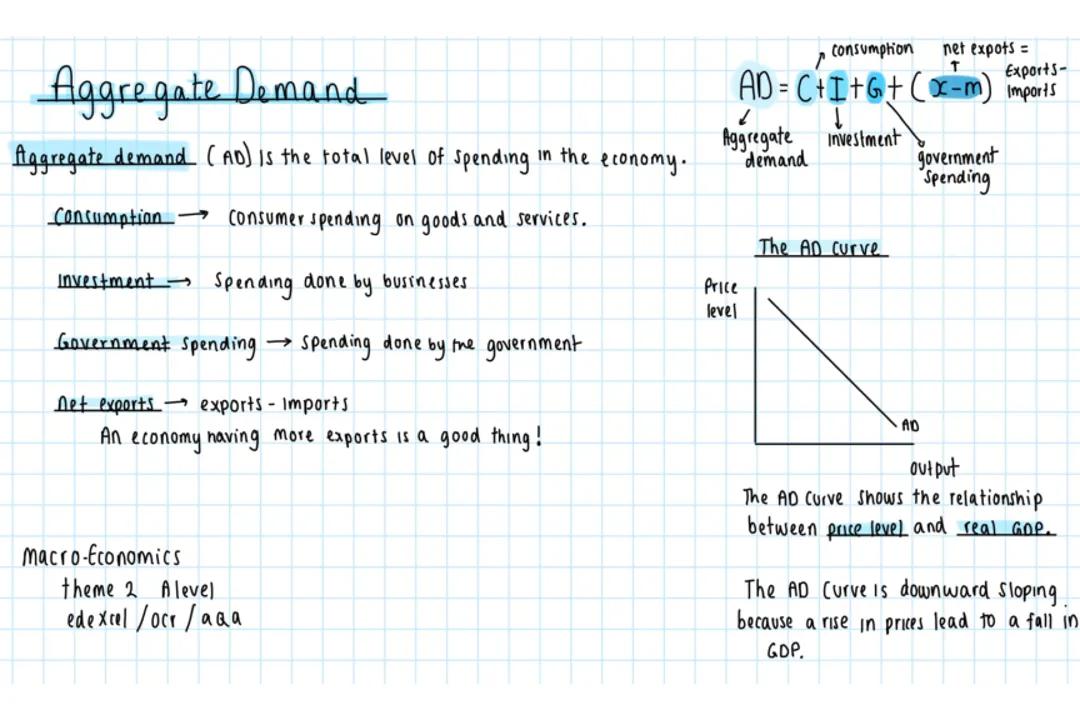 Aggregate Demand
Aggregate demand (AD) is the total level of spending in the economy.
Consumption → Consumer spending on goods and services.
Investment → Spending done by businesses
Government spending → spending done by the government
net exports → exports - imports
An economy having more exports is a good thing!
macro-Economics
theme 2 A level
edexcel / ocr / aqa
consumption
net expots =
Exports-
Imports
AD = C+I+G+(x-m)
Aggregate
demand
investment
government
spending
The AD curve
Price
level
AD
output
The AD curve shows the relationship
between price level and real GDP.
The AD curve is downward sloping
because a rise in prices lead to a fall in
GDP.